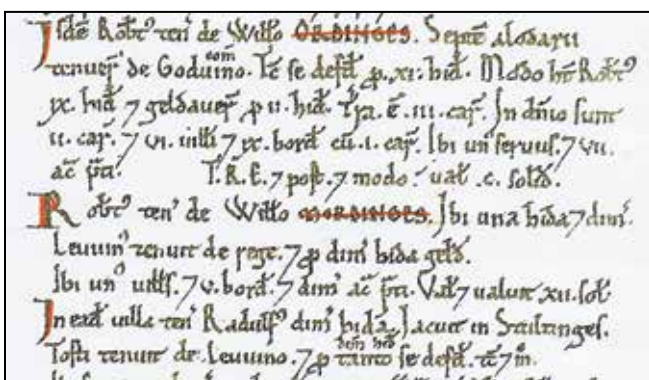 Isdē Robt᾽ ten᾽ de Willo ORDINGES. Septē alodarii
com̄
tenuer̃ de Goduino. Tc̄ se defd̄ ꝑ. xi. hid̄. Modo ht̄ Robt᾽
ix. hid̄ ⁊ geldauer̃ ꝑ ii. hid̄. Tr̃a. ē. iii. car̃. In dn̄io sunt
ii. car̃. ⁊ vi. uilli ⁊ ix. bord̄ cū. i. car̃. Ibi un᾽ seruus. ⁊ vii.
ac̄ p̃ti. T.R.E. ⁊ post. ⁊ modo: ual̄. c. solid̄.
Robt᾽ ten᾽ de Willo MORDINGES. Ibi una hida ⁊ dim᾽.
Leuuin᾽ tenuit de rege. ⁊ ꝑ dim᾽ hida geld̄.
Ibi un᾽ uill̄s. ⁊ v. bord̄. ⁊ dim᾽ ac̄ p̃ti. Val̄ ⁊ ualuit xii. sol̄.
In ead̄ uilla ten᾽ Radulf᾽ dim᾽ hidā. Jacuit in
dim᾽ hid̄
Tosti tenuit de Leuuino. ⁊ ꝑ tanto se defd̄. tc̄ ⁊ m̊.